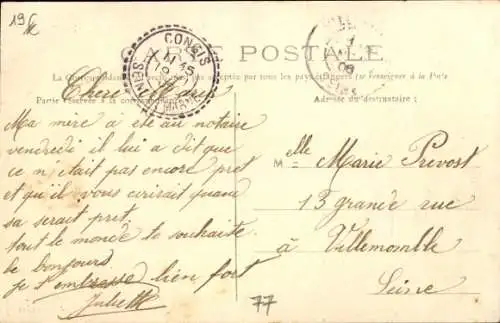 19
CONGIS
SEINE-ET-MARNE
CARTE POSTALE
La Correspondance au recto n'est pas acceptée par tous les pays étrangers (se renseigner à la Poste)
Partie réservée à la correspondance
Adresse du destinataire :
Chère Marie
Ma mère a été au notaire
vendredi il lui a dit que
ce n'était pas encore pret
et qu'il vous écrirait quand
sa serait pret.
tout le monde te souhaite
le bonjours
je t'embrasse bien fort
Juliette
Melle Marie Prevost
13 grande rue
à Villemomble
Seine
77